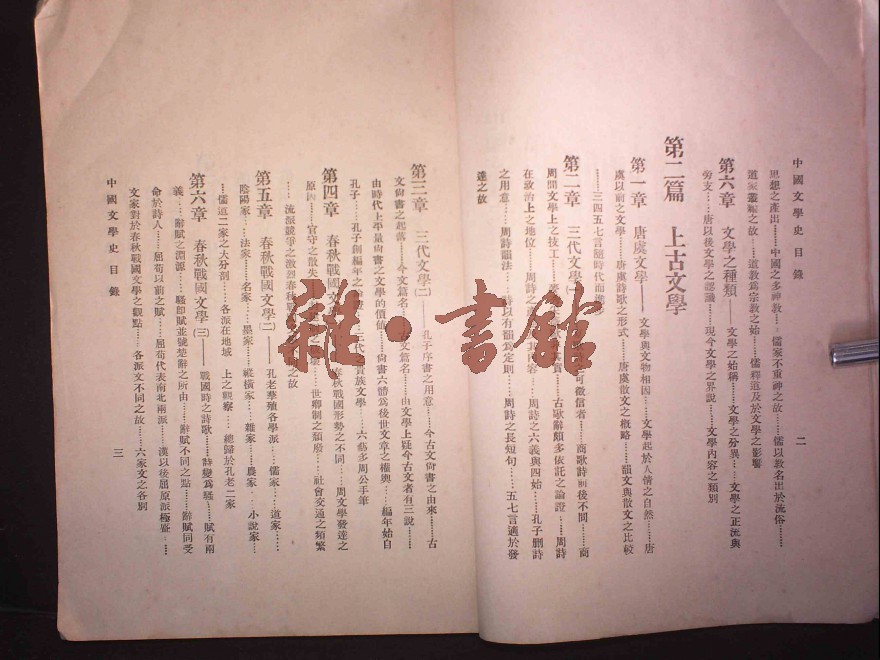 中國文學史 目錄
二
思想之產出……中國之多神教……儒家不重神之故……儒以教名出於流俗……
道家叢雜之故……道教爲宗教之始……儒釋道及於文學之影響
第六章 文學之種類——文學之始稱……文學之分異……文學之正流與
旁支……唐以後文學之認識……現今文學之界說……文學內容之類別
第二篇 上古文學
第一章 唐虞文學——文學與文物相因……文學起於人情之自然……唐
虞以前之文學……唐虞詩歌之形式……唐虞散文之概略……韻文與散文之比較
……三四五七言隨時代而
第二章 三代文學(一)可徵信者……商歌詩前後不同……商
周間文學上之技工……古歌辭頗多依託之論證……周詩
在政治上之地位……周詩之其內容……周詩之六義與四始……孔子刪詩
之用意……周詩韻法……詩以有韻爲定則……周詩之長短句……五七言適於發
達之故
第三章 三代文學(二)——孔子序書之用意……今古文尙書之由來……古
文尙書之起落……今文篇名……古文篇名……由文學上疑今古文者有三說……
由時代上平量尙書之文學的價値……尙書六體爲後世文章之權輿……編年始自
孔子……孔子創編年之代之貴族文學……六藝多周公手筆
第四章 春秋戰國文春秋戰國形勢之不同……周文學發達之
原因……官守之散失……世卿制之頹廢……社會交通之頻繁
……流派競爭之激烈春秋戰之故
第五章 春秋戰國文學(二)——孔老華殖各學派……儒家……道家……
陰陽家……法家……名家……墨家……縱橫家……雜家……農家……小說家……
儒道二家之大分剖……各派在地域上之觀察……總歸於孔老二家
第六章 春秋戰國文學(三)——戰國時之詩歌……詩變爲騷……賦有兩
義……辭賦之淵源……騷卽賦並號楚辭之所由……辭賦不同之點……辭賦同受
命於詩人……屈荀以前之賦……屈荀代表南北兩派……漢以後屈原派極盛……
文家對於春秋戰國文學之觀點……各派文不同之故……六家文之各別
中國文學史 目錄
三
雜·書館